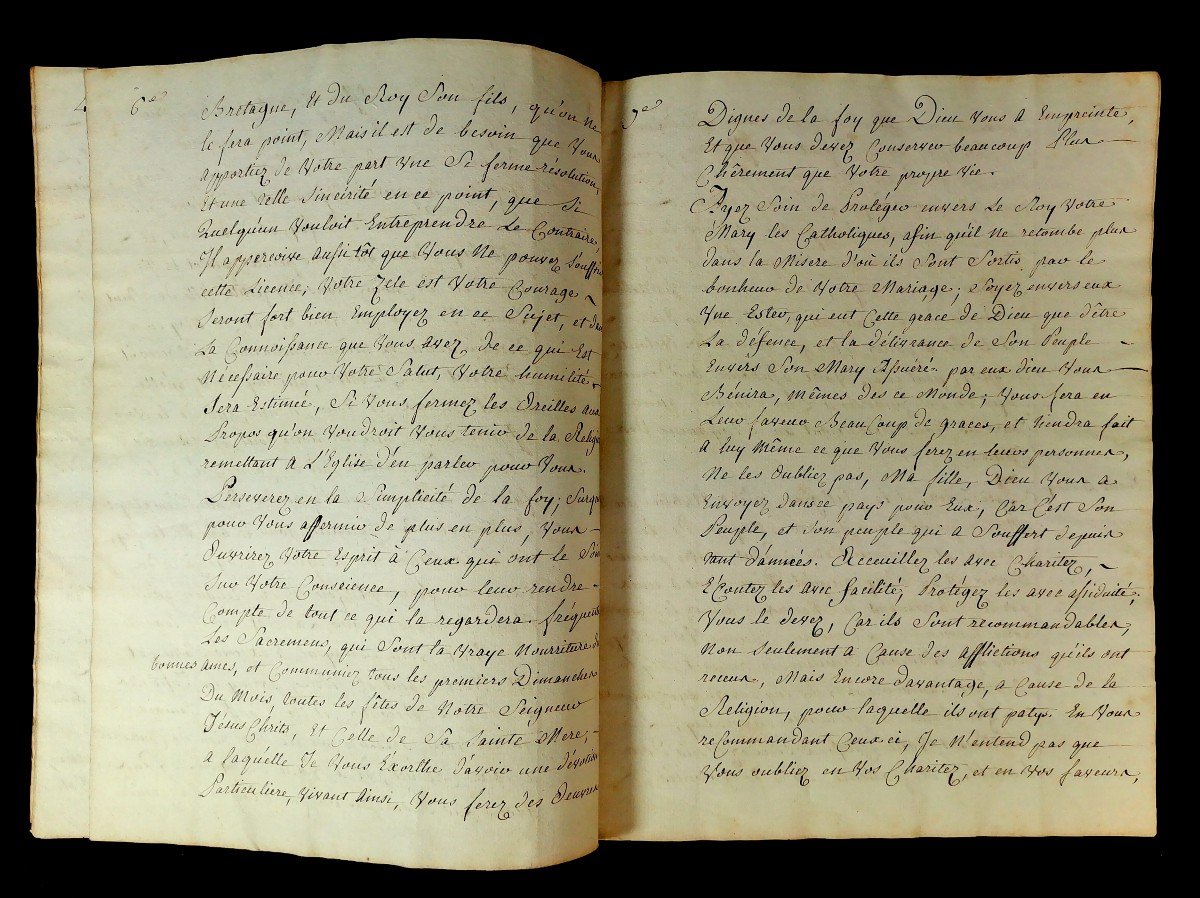 6e
Bretagne, Et du Roy Son fils, qu'on ne
le fera point, Mais il est de besoin que Vous
apportiez de Votre part Vne Si ferme résolution,
Et une telle Sincérité en ce point, que Si
Quelqu'un Vouloit Entreprendre Le Contraire,
Il apperçoive aussitôt que Vous Ne pouvez Souffrir
cette Licence; Votre Zele est Votre Courage ~
Seront fort bien Employez en ce Sujet, et dans
La Connoissance que Vous avez de ce qui Est
Nécessaire pour Votre Salut, Votre humilité
Sera Estimée, Si Vous fermez les Oreilles aux
Propos qu'on Voudroit Vous tenir de la Religion
remettant a L'Eglise d'en parler pour Vous.
Perseverez en la Simplicité de la foy;
pour Vous affermir de plus en plus, Vous —
Ouvrirez Votre Esprit à Ceux qui ont le Soin
Sur Votre Conscience, pour leur rendre —
Compte de tout ce qui la regardera. fréquentez
Les Sacremens, qui Sont la Vraye Nourriture des
bonnes ames, et Communiez tous les premiers Dimanches
Du Mois, toutes les fêtes de Notre Seigneur
Jésus Chrits, et Celle de Sa Sainte Mere, —
a laquélle Je Vous Exorthe d'avoir une dévotion
Particuliere, Vivant Ainsi, Vous ferez des Oeuvres
7e
Dignes de la foy que Dieu Vous a Empreinte,
Et que Vous devez Conserver beaucoup Plus —
Chérement que Votre propre Vie.
Ayez Soin de Protéger invers Le Roy Votre
Mary les Catholiques, afin qu'il Ne retombe plus
dans la Misere d'où ils Sont Sortis par le
bonheur de Votre Mariage; Soyez envers eux
Vne Ester, qui eut Cette grace de Dieu que d'être
La défence, et la délivrance de Son Peuple —
Envers Son Mary Assuéré. par eux dieu Vous —
Bénira, mêmes des ce Monde; Vous fera en
Leur faveur Beaucoup de graces, et tiendra fait
a luy Même ce que Vous ferez en leurs personnes,
Ne les Oubliez pas, Ma fille, Dieu Vous a
Envoyez dans ce pays pour Eux, Car C'est Son
Peuple, et Son peuple qui a Souffert depuis
tant d'années. Accueillez les avec Charitez, ~
Écoutez les avec facilité, Protégez les avec assiduité,
Vous le devez, Car ils Sont recommandables,
Non Seulement a Cause des afflictions qu'ils ont
receus, Mais Encore davantage, a Cause de la
Religion, pour laquelle ils ont patys. En Vous
recommandant Ceux ci, Je N'entend pas que
Vous oubliez en Vos Charitez, et en Vos faveurs,